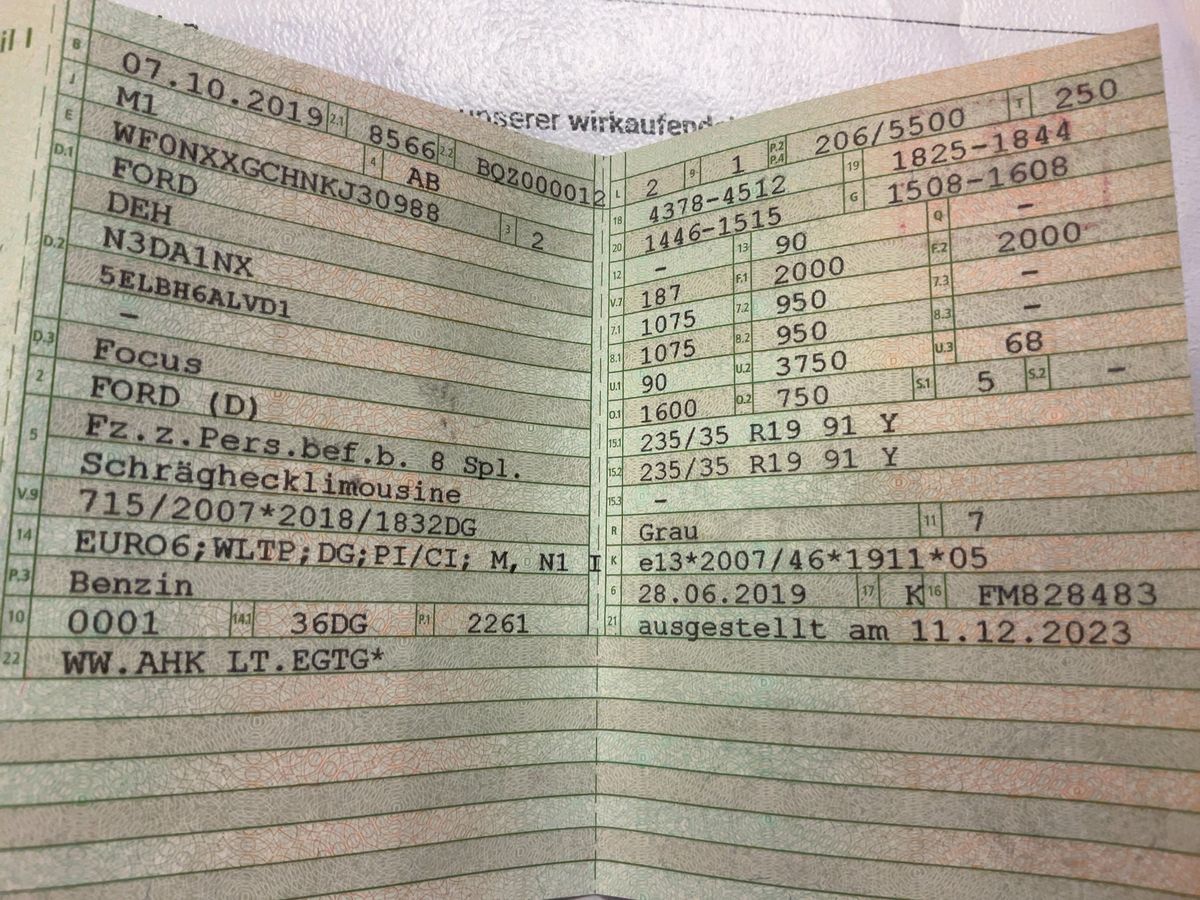 il I
unserer wirkaufend
B 07.10.2019 2.1 8566 2.2 BQZ000012
J M1 4 AB
E WF0NXXGCHNKJ30988 3 2
D.1 FORD
DEH
D.2 N3DA1NX
5ELBH6ALVD1
–
D.3 Focus
2 FORD (D)
5 Fz.z.Pers.bef.b. 8 Spl.
Schräghecklimousine
V.9 715/2007*2018/1832DG
14 EURO6;WLTP;DG;PI/CI; M, N1 I
P.3 Benzin
10 0001 14.1 36DG P.1 2261
22 WW.AHK LT.EGTG*
L 2 9 1 P.2 P.4 206/5500 T 250
18 4378-4512 19 1825-1844
20 1446-1515 G 1508-1608
12 – 13 90 Q –
V.7 187 F.1 2000 F.2 2000
7.1 1075 7.2 950 7.3 –
8.1 1075 8.2 950 8.3 –
U.1 90 U.2 3750 U.3 68
O.1 1600 O.2 750 S.1 5 S.2 –
15.1 235/35 R19 91 Y
15.2 235/35 R19 91 Y
15.3 –
R Grau 11 7
K e13*2007/46*1911*05
6 28.06.2019 17 K 16 FM828483
21 ausgestellt am 11.12.2023